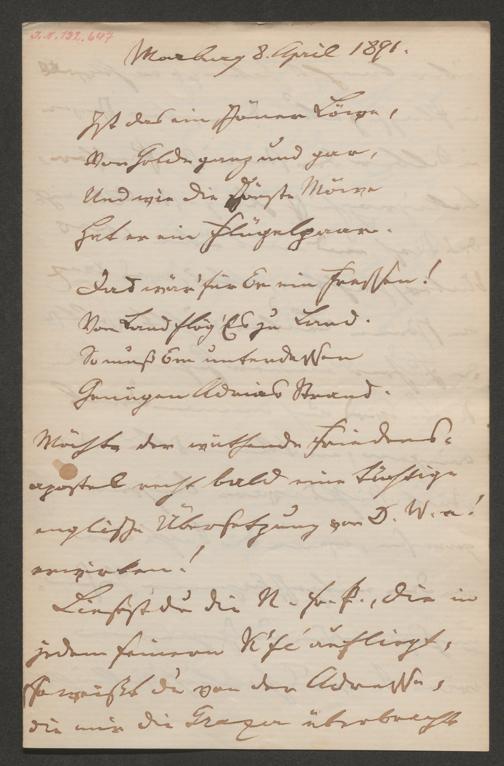 J.N. 132.647
Marburg 8. April 1891.
Ist das ein schöner Löwe,
Von Golde ganz und gar,
Und wie die schönste Möwe
Hat er ein Flügelpaar.
Das wär' für Em ein Fressen!
Von Land flög' Es zu Land.
So muß Em unterdessen
Genügen Adrias Strand.
Möchte der wüthende Friedens-
apostel recht bald eine tüchtige
englische Übersetzung von D. W. n!
erwirken!
Liesest du die N. fr. P., die in
jedem feinern K'fé aufliegt,
so weißt du von der Adresse,
die mir die Grazer überbracht